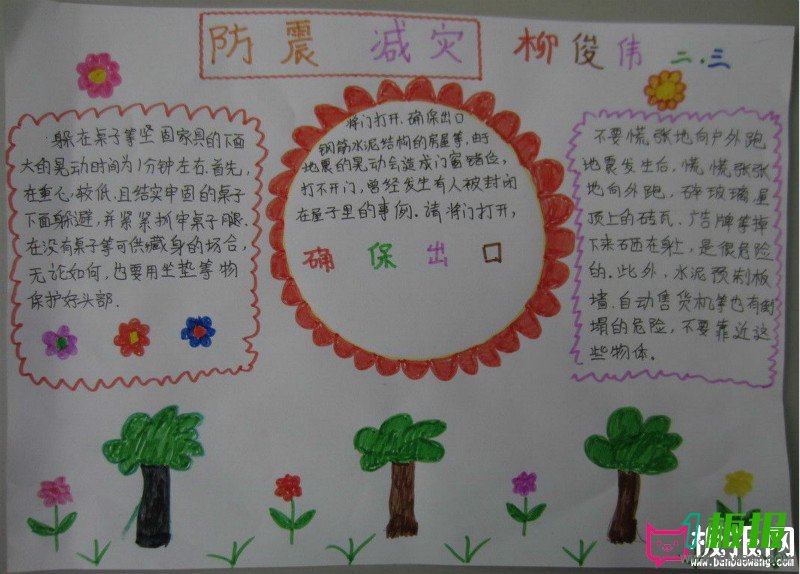 防震 减灾 柳俊伟 二.三
躲在桌子等坚固家具的下面
大的晃动时间为1分钟左右.首先,
在重心较低.且结实牢固的桌子
下面躲避,并紧紧抓牢桌子腿.
在没有桌子等可供藏身的场合,
无论如何,也要用坐垫等物
保护好头部.
将门打开.确保出口
钢筋水泥结构的房屋等,由于
地震的晃动会造成门窗错位,
打不开门,曾经发生有人被封闭
在屋子里的事例.请将门打开,
确保出口
不要慌张地向户外跑
地震发生后,慌慌张张
地向外跑,碎玻璃.屋
顶上的砖瓦.广告牌等掉
下来砸在身上,是很危险
的.此外,水泥预制板
墙.自动售货机等也有倒
塌的危险,不要靠近这
些物体.
1板报
板报网
www.banbaowang.com